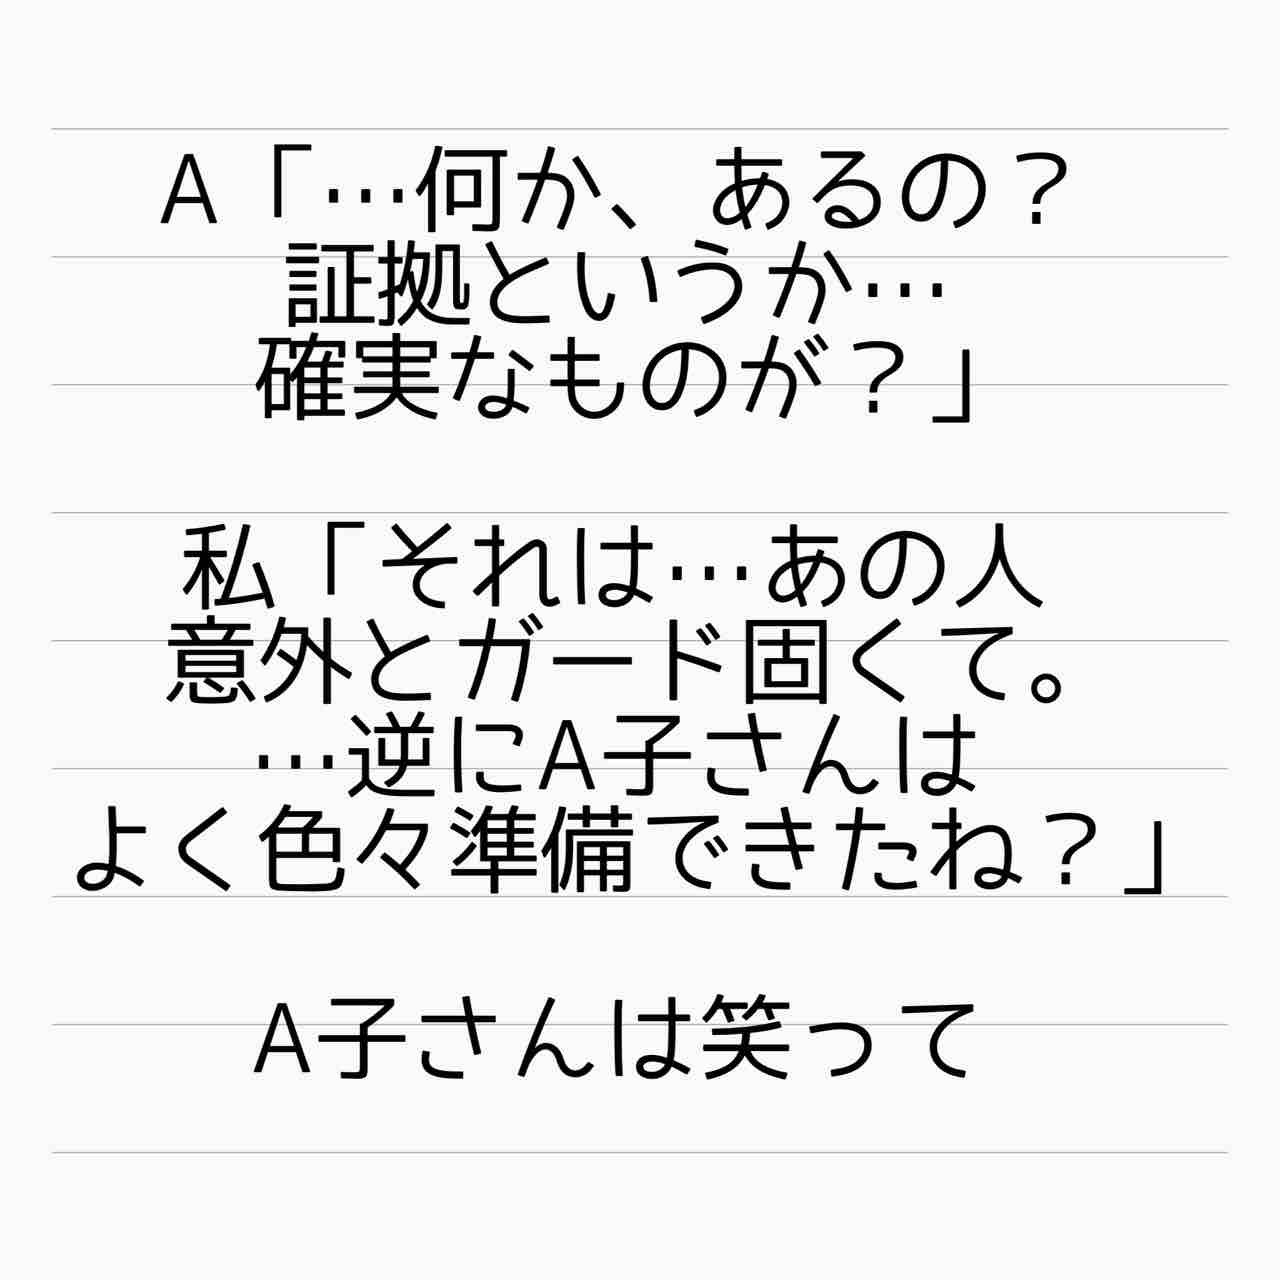 A「…何か、あるの？
証拠というか…
確実なものが？」
私「それは…あの人
意外とガード固くて。
…逆にA子さんは
よく色々準備できたね？」
A子さんは笑って